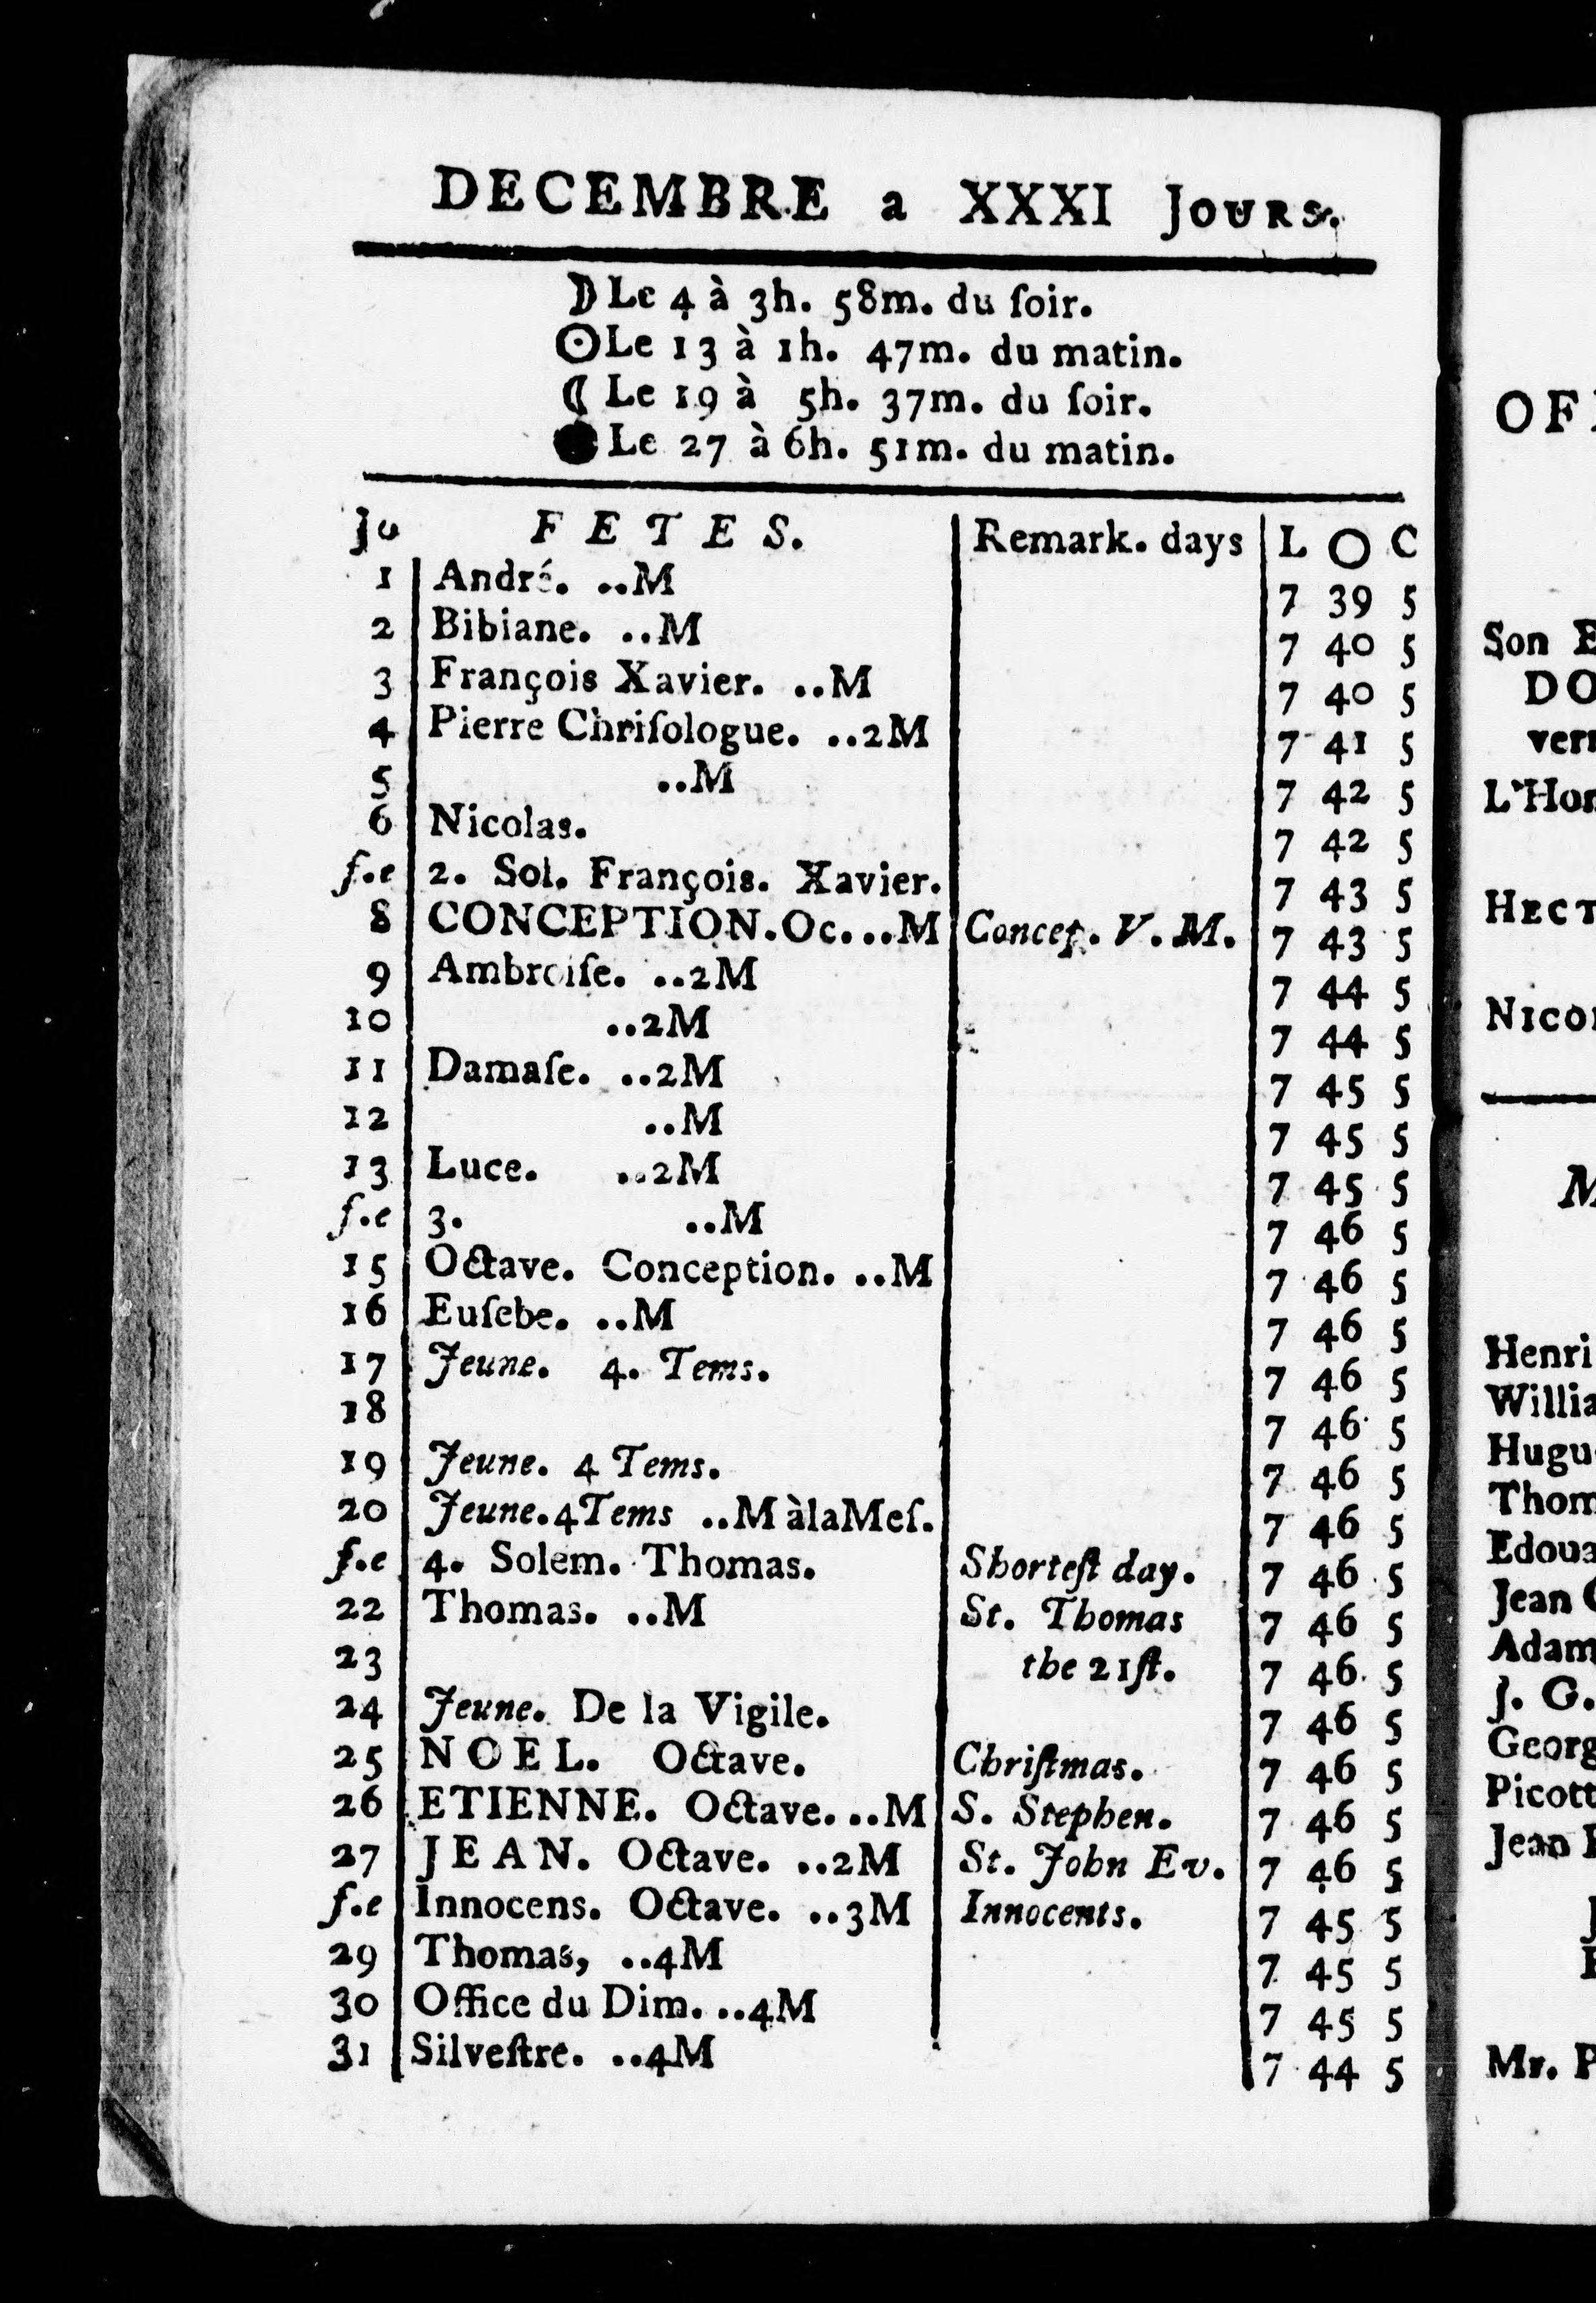 DECEMBRE a XXXI Jours.
☽ Le 4 à 3h. 58m. du ſoir.
☉ Le 13 à 1h. 47m. du matin.
☾ Le 19 à 5h. 37m. du ſoir.
● Le 27 à 6h. 51m. du matin.
Jo FETES. Remark. days L O C
1 André. ..M 7 39 5
2 Bibiane. ..M 7 40 5
3 François Xavier. ..M 7 40 5
4 Pierre Chriſologue. ..2M 7 41 5
5 ..M 7 42 5
6 Nicolas. 7 42 5
f.e 2. Sol. François. Xavier. 7 43 5
8 CONCEPTION.Oc...M Concep. V. M. 7 43 5
9 Ambroiſe. ..2M 7 44 5
10 ..2M 7 44 5
11 Damaſe. ..2M 7 45 5
12 ..M 7 45 5
13 Luce. ..2M 7 45 5
f.e 3. ..M 7 46 5
15 Octave. Conception. ..M 7 46 5
16 Euſebe. ..M 7 46 5
17 Jeune. 4. Tems. 7 46 5
18 7 46 5
19 Jeune. 4 Tems. 7 46 5
20 Jeune.4Tems ..M àlaMeſ. 7 46 5
f.e 4. Solem. Thomas. Shorteſt day. 7 46 5
22 Thomas. ..M St. Thomas 7 46 5
23 the 21ſt. 7 46 5
24 Jeune. De la Vigile. 7 46 5
25 NOEL. Octave. Chriſtmas. 7 46 5
26 ETIENNE. Octave. ..M S. Stephen. 7 46 5
27 JEAN. Octave. ..2M St. John Ev. 7 46 5
f.e Innocens. Octave. ..3M Innocents. 7 45 5
29 Thomas, ..4M 7 45 5
30 Office du Dim. ..4M 7 45 5
31 Silveſtre. ..4M 7 44 5
Son
Henri
Jean
Mr.